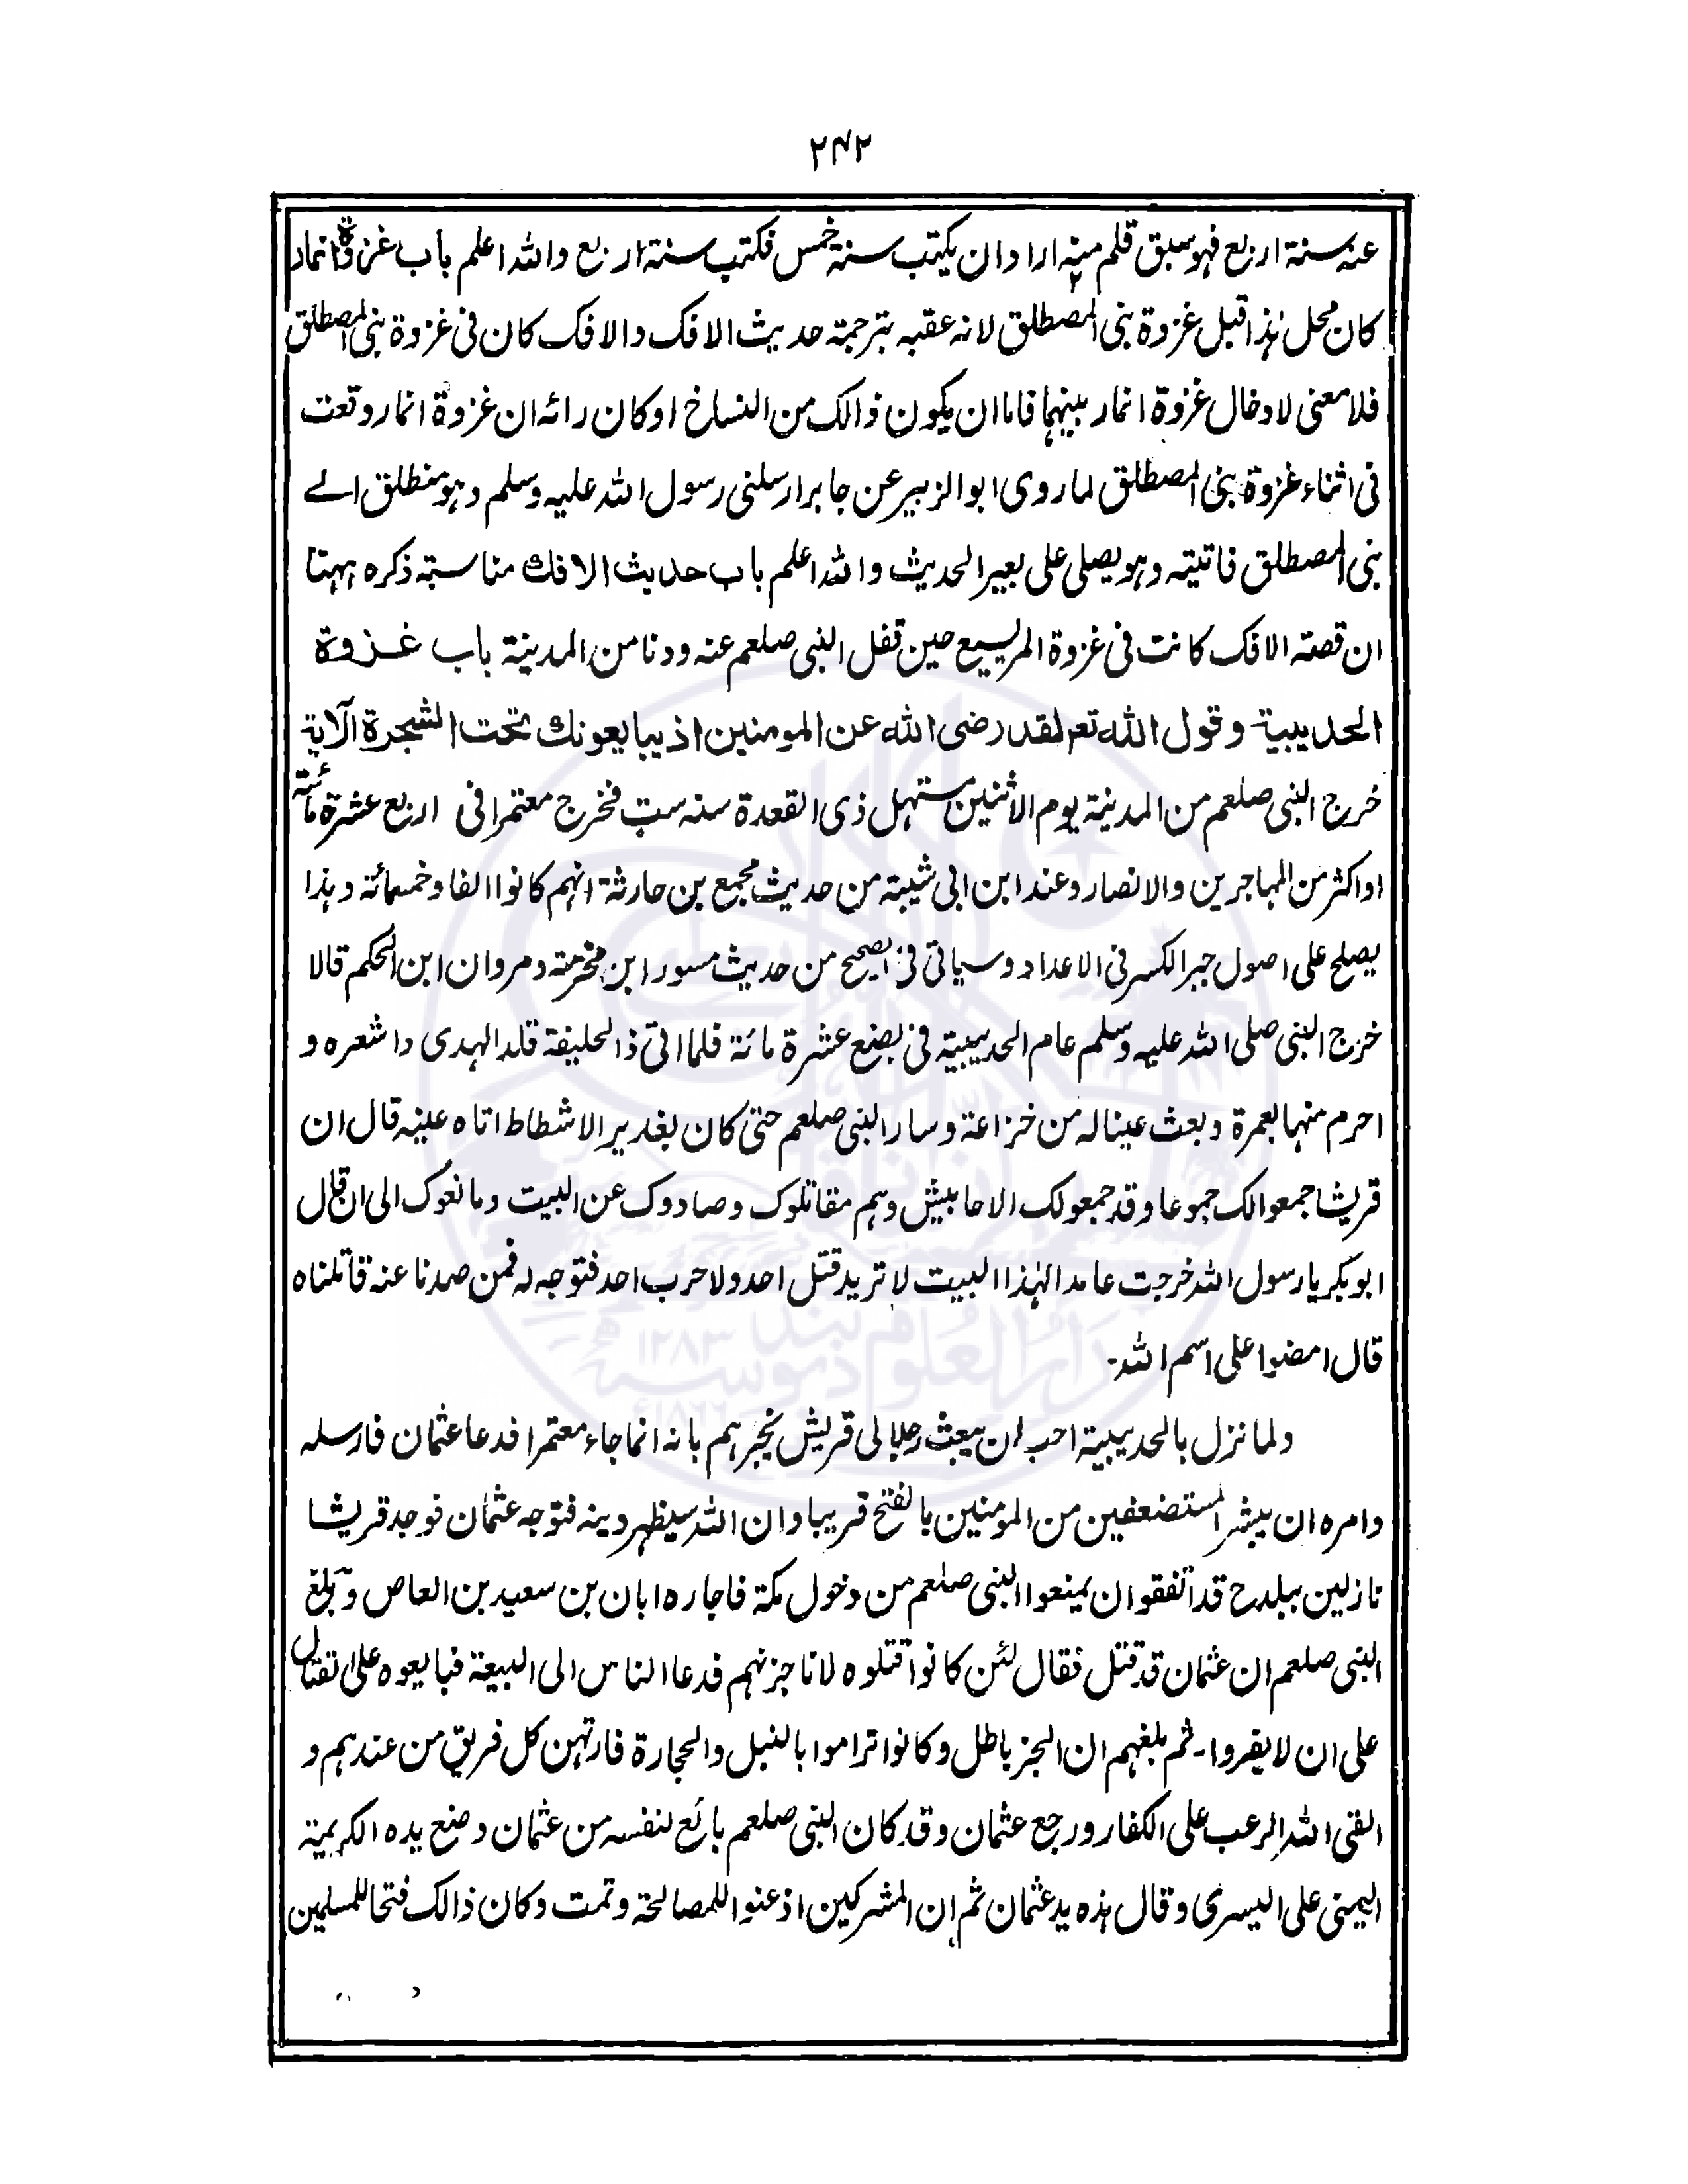 ۲۴۲
عنہ سنۃ اربع فہو سبق قلم منہ اراد ان یکتب سنۃ خمس فکتب سنۃ اربع واللہ اعلم باب غزوۃ انمار
کان محل ہذا قبل غزوۃ بنی المصطلق لانہ عقبہ بترجمۃ حدیث الافک والافک کان فی غزوۃ بنی المصطلق
فلا معنی لادخال غزوۃ انمار بینہما فاما ان یکون ذالک من النساخ او کان رائہ ان غزوۃ انمار وقعت
فی اثناء غزوۃ بنی المصطلق لما روی ابو الزبیر عن جابر ارسلنی رسول اللہ علیہ وسلم وہو منطلق الے
بنی المصطلق فاتیتہ وہو یصلی علی بعیر الحدیث واللہ اعلم باب حدیث الافک مناسبۃ ذکرہ ہہنا
ان قصتہ الافک کانت فی غزوۃ المریسیع حین قفل النبی صلعم عنہ ودنا من المدینۃ باب غزوۃ
الحدیبیۃ وقول اللہ تعہ لقد رضی اللہ عن المومنین اذ یبایعونک تحت الشجرۃ الآیۃ
خرج النبی صلعم من المدینۃ یوم الاثنین مستہل ذی القعدۃ سنہ ست فخرج معتمرا فی اربع عشرۃ مائتہ
او اکثر من المہاجرین والانصار وعند ابن ابی شیبتہ من حدیث مجمع بن حارثۃ انہم کانوا الفا وخمسمائۃ وہذا
یصلح علی اصول جبر الکسر فی الاعداد وسیاتی فی الصحیح من حدیث مسور ابن مخرمتہ ومروان ابن الحکم قالا
خرج النبی صلی اللہ علیہ وسلم عام الحدیبیۃ فی بضع عشرۃ مائۃ فلما اتی ذا لحلیفۃ قلد الہدی واشعرہ و
احرم منہا بعمرۃ وبعث عینا لہ من خزاعۃ وسار النبی صلعم حتی کان بغدیر الاشطاط اتاہ عینہ قال ان
قریشا جمعوا لک جموعا وقد جمعو لک الاحابیش وہم مقاتلوک وصادوک عن البیت ومانعوک الی ان قال
ابو بکر یا رسول اللہ خرجت عامدا لہٰذا البیت لا ترید قتل احد ولا حرب احد فتوجہ لہ فمن صدنا عنہ قاتلناہ
قال امضوا علی اسم اللہ۔
ولما نزل بالحدیبیۃ احب ان یبعث رجلا الی قریش یخبرہم بانہ انما جاء معتمرا فدعا عثمان فارسلہ
وامرہ ان یبشر المستضعفین من المومنین بالفتح قریبا وان اللہ سیظہر دینہ فتوجہ عثمان فوجد قریشا
نازلین ببلدح قد اتفقوا ان یمنعوا النبی صلعم من دخول مکۃ فاجارہ ابان بن سعید بن العاص وبلغ
النبی صلعم ان عثمان قد قتل فقال لئن کانوا قتلوہ لاناجزنہم فدعا الناس الی البیعۃ فبایعوہ علی القتال
علی ان لا یفروا۔ ثم بلغہم ان الخبر باطل وکانوا تراموا بالنبل والحجارۃ فارتہن کل فریق من عندہم و
القی اللہ الرعب علی الکفار ورجع عثمان وقد کان النبی صلعم بائع لنفسہ من عثمان وضع یدہ الکریمۃ
الیمنی علی الیسری وقال ہذہ ید عثمان ثم ان المشرکین اذعنوا للمصالحۃ وتمت وکان ذالک فتحا للمسلمین
دار العلوم دیوبند
۱۲۸۳ھ
۱۸۶۶ء